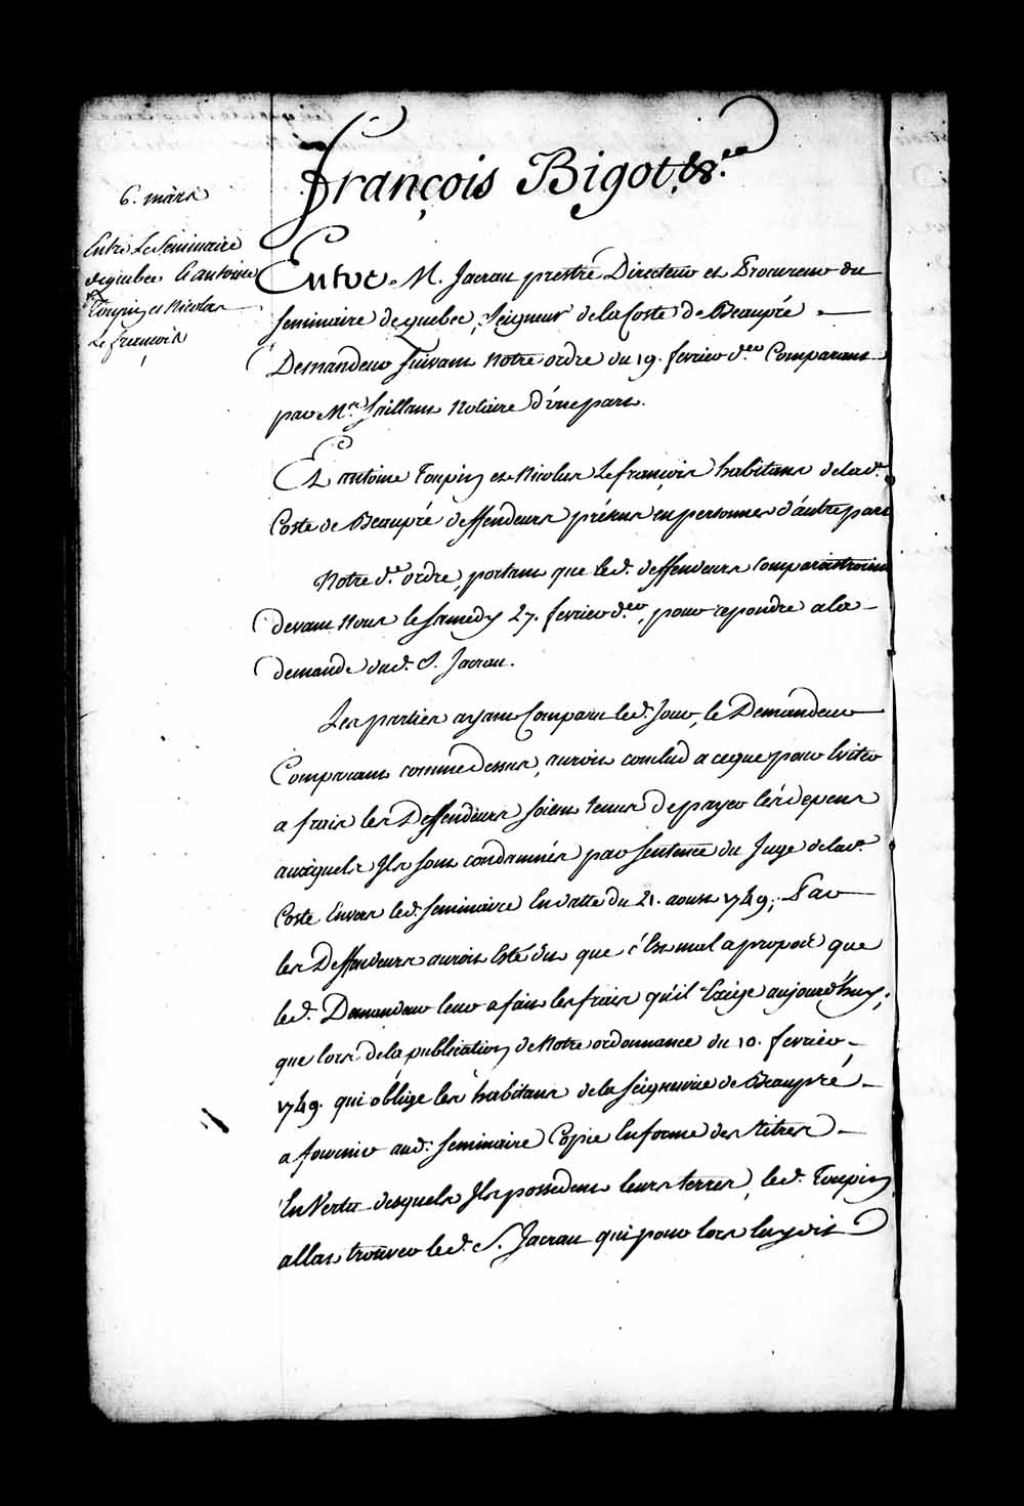 François Bigot, &.ca
6. mars
Entre Le Seminaire
de quebec Et antoine
Toupin et Nicolas
Le françois
Entre M. Jacrau prestre Directeur et Procureur du
Seminaire de quebec, Seigneur de la Coste de Beaupré
Demandeur suivant notre ordre du 19. fevrier d.er Comparant
par M.e Saillant Notaire d'une part.
Et antoine Toupin et Nicolas Le françois habitans de lad.e
Coste de Beaupré deffendeurs présens en personnes d'autre part
Notre d.e ordre, portant que led. deffendeurs Comparaitroient
devant Nous le samedy 27. fevrier d.er, pour repondre a la
demande dud. S. Jacrau.
Les parties ayant Comparu led. Jour, le Demandeur
Comparant comme dessus, auroit conclud a ce que pour Eviter
a frais les Deffendeurs soient tenus de payer les depens
auxquels Ils sont condamnés par sentence du Juge de lad.e
Coste Envers led. Seminaire En datte du 21. aoust 1749; Par
les Deffendeurs auroit Esté dit que c'Est mal apropos que
led. Demandeur leur a fait les frais qu'il Exige aujourd'huy;
que lors de la publication de Notre ordonnance du 10. fevrier
1749. qui oblige les habitans de la Seigneurie de Beaupré
a fournir aud. Seminaire Copie En forme des titres
En Vertu desquels Ils possedent leurs terres, led. Toupin
alla trouver led. S. Jacrau qui pour lors luy dit